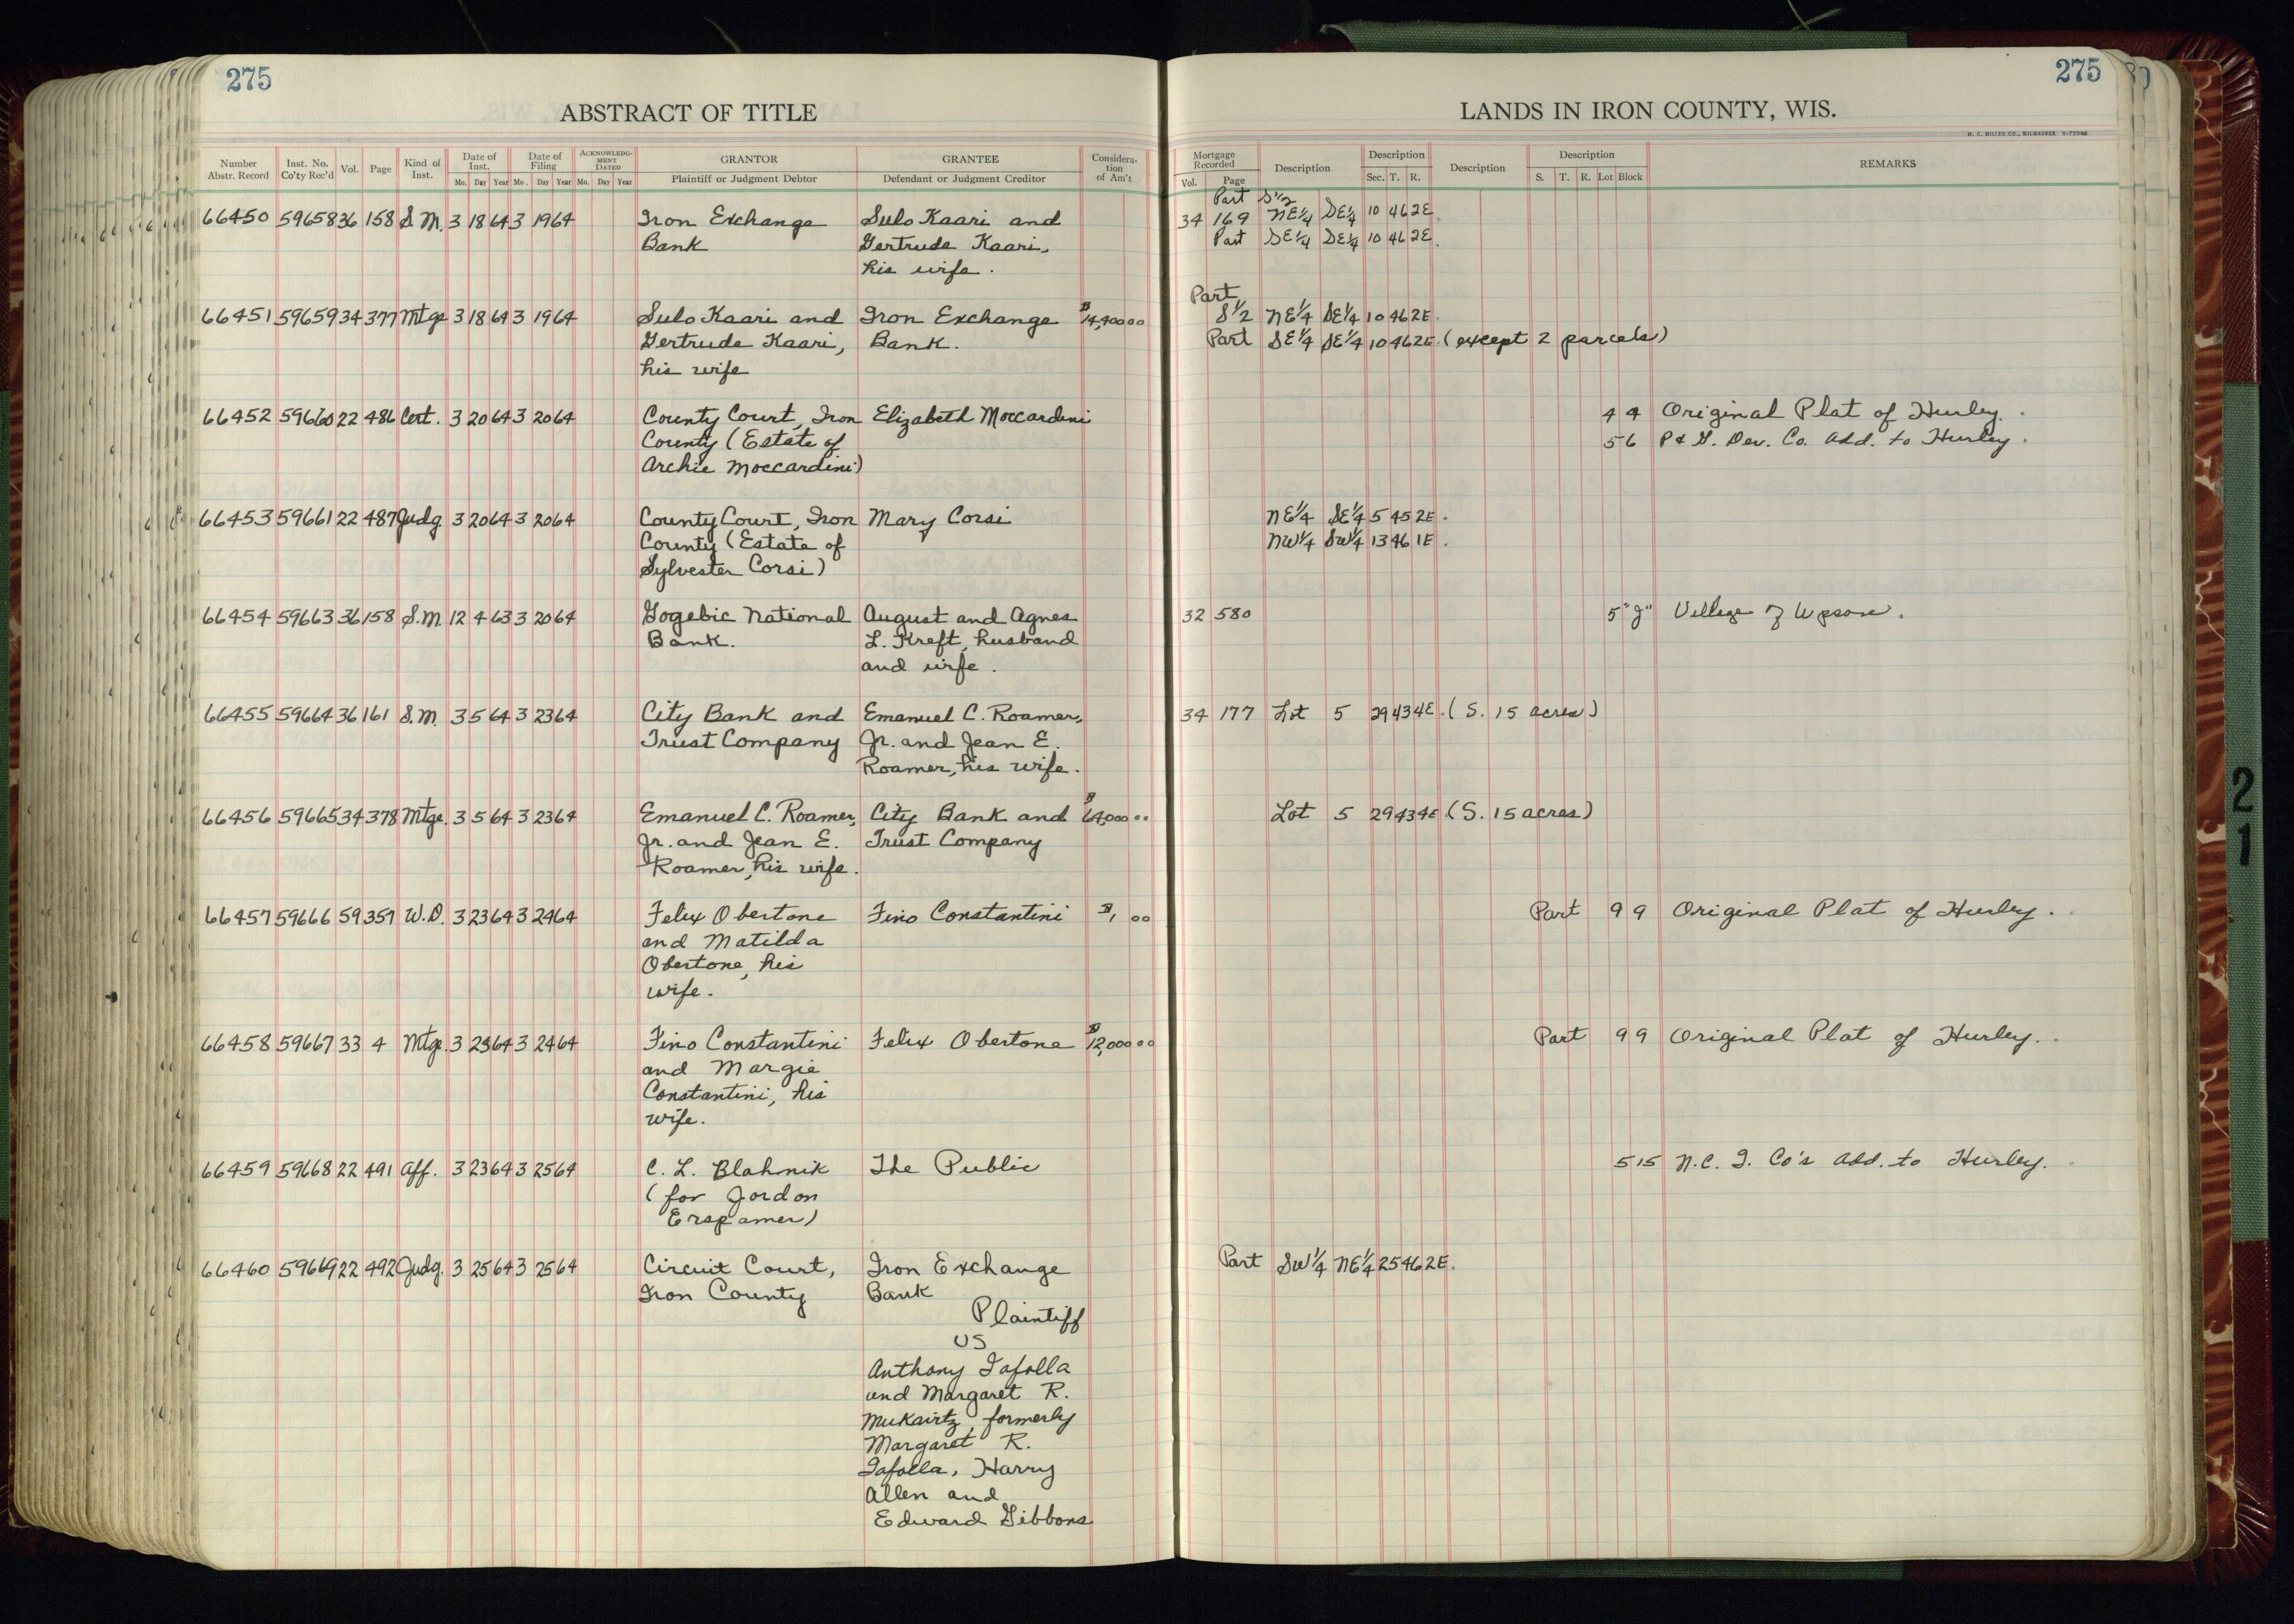 275
ABSTRACT OF TITLE
Number Abstr. Record Inst. No. Co'ty Rec'd Vol. Page Kind of Inst. Date of Inst. Date of Filing ACKNOWLEDGMENT DATED GRANTOR GRANTEE Consideration of Am't
Mo. Day Year Mo. Day Year Mo. Day Year Plaintiff or Judgment Debtor Defendant or Judgment Creditor
66450 59658 36 158 S.M. 3 18 64 3 19 64 Iron Exchange Sulo Kaari and
Bank Gertrude Kaari,
his wife.
66451 59659 34 377 Mtge 3 18 64 3 19 64 Sulo Kaari and Iron Exchange $14,400 00
Gertrude Kaari, Bank.
his wife
66452 59660 22 486 Cert. 3 20 64 3 20 64 County Court, Iron Elizabeth Moccardini
County (Estate of
Archie Moccardini)
66453 59661 22 487 Judg 3 20 64 3 20 64 County Court, Iron Mary Corsi
County (Estate of
Sylvester Corsi)
66454 59663 36 158 S.M. 12 4 63 3 20 64 Gogebic National August and Agnes
Bank. L. Kreft, husband
and wife.
66455 59664 36 161 S.M. 3 5 64 3 23 64 City Bank and Emanuel C. Roamer,
Trust Company Jr. and Jean E.
Roamer, his wife.
66456 59665 34 378 Mtge. 3 5 64 3 23 64 Emanuel C. Roamer, City Bank and $64,000 00
Jr. and Jean E. Trust Company
Roamer, his wife.
66457 59666 59 357 W.D. 3 23 64 3 24 64 Felix Obertone Fino Constantini $1, 00
and Matilda
Obertone, his
wife.
66458 59667 33 4 Mtge. 3 23 64 3 24 64 Fino Constantini Felix Obertone $12,000 00
and Margie
Constantini, his
wife.
66459 59668 22 491 Aff. 3 23 64 3 25 64 C. L. Blahnik The Public
(for Jordon
Erspamer)
66460 59669 22 492 Judg. 3 25 64 3 25 64 Circuit Court, Iron Exchange
Iron County Bank
Plaintiff
VS
Anthony Iafolla
and Margaret R.
Mukavitz, formerly
Margaret R.
Iafolla, Harry
Allen and
Edward Gibbons
275
LANDS IN IRON COUNTY, WIS.
H. C. MILLER CO., MILWAUKEE
Mortgage Recorded Description Description Description Description REMARKS
Vol. Page Sec. T. R. S. T. R. Lot Block
Part S½
34 169 NE¼ SE¼ 10 46 2E.
Part SE¼ SE¼ 10 46 2E.
Part
S½ NE¼ SE¼ 10 46 2E.
Part SE¼ SE¼ 10 46 2E. (except 2 parcels)
4 4 Original Plat of Hurley.
5 6 P & G. Dev. Co. Add. to Hurley.
NE¼ SE¼ 5 45 2E.
NW¼ SW¼ 13 46 1E.
32 580 5 "J" Village of Upson.
34 177 Lot 5 29 43 4E. (S. 15 acres)
Lot 5 29 43 4E. (S. 15 acres)
Part 9 9 Original Plat of Hurley.
Part 9 9 Original Plat of Hurley.
5 15 N.C. I. Co's Add. to Hurley.
Part SW¼ NE¼ 25 46 2E.
21